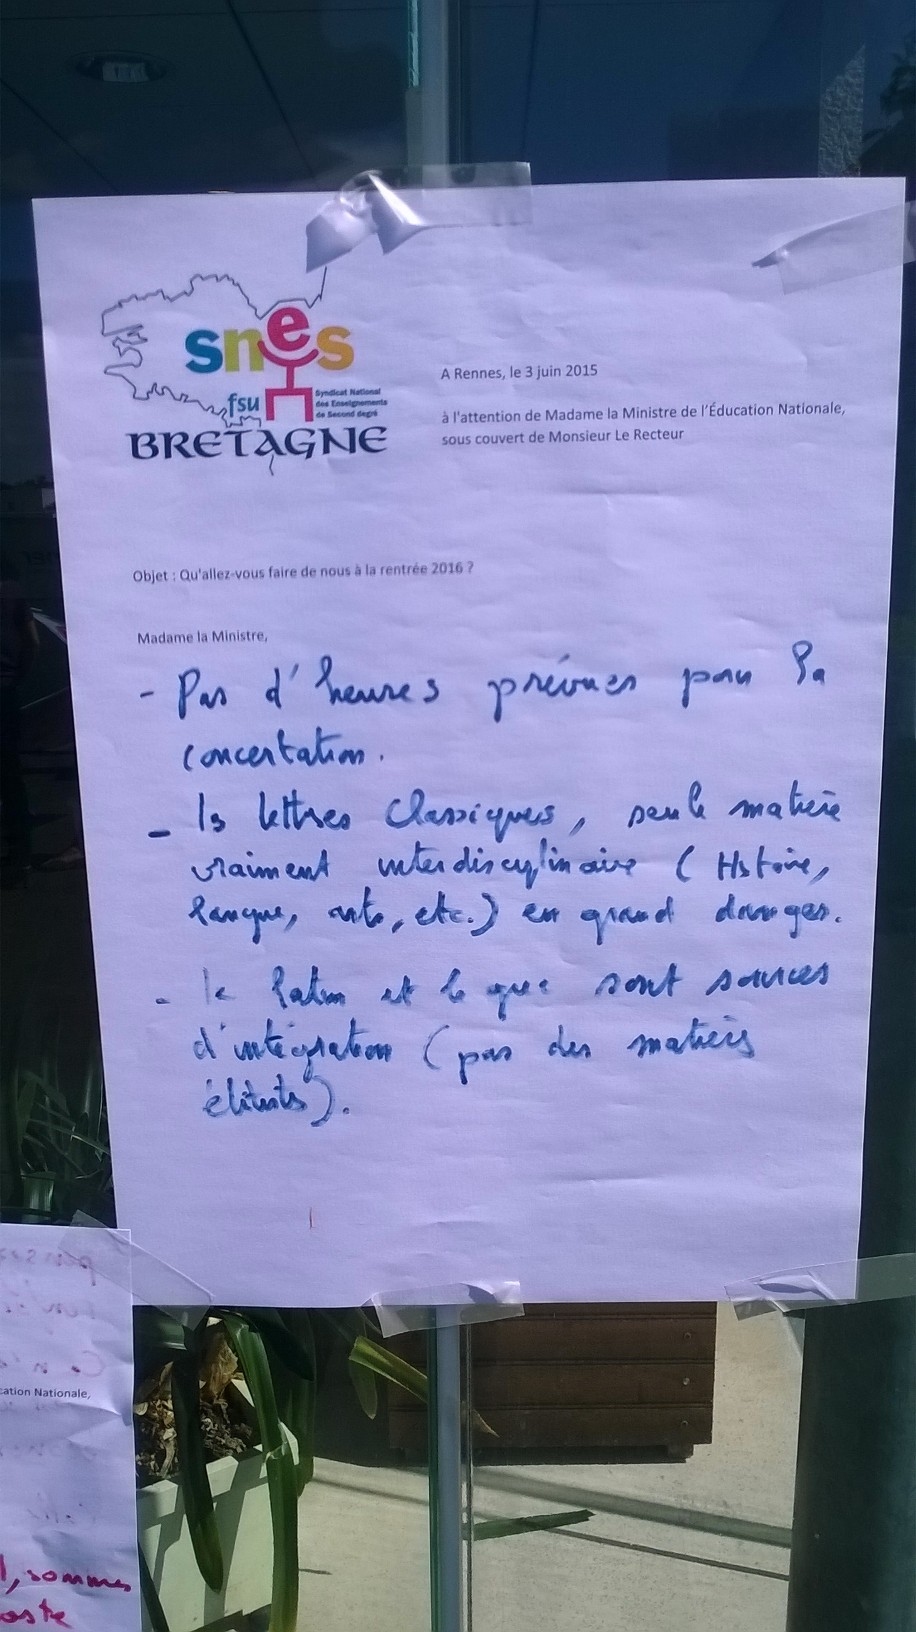 snes
fsu
Syndicat National
des Enseignements
de Second degré
BRETAGNE
A Rennes, le 3 juin 2015
à l'attention de Madame la Ministre de l'Éducation Nationale,
sous couvert de Monsieur Le Recteur
Objet : Qu'allez-vous faire de nous à la rentrée 2016 ?
Madame la Ministre,
- Pas d'heures prévues pour la
concertation.
- ls lettres classiques, seule matière
vraiment interdisciplinaire (Histoire,
langue, arts, etc.) en grand danger.
- le latin et le grec sont sources
d'intégration (pas des matières
élitistes).
cation Nationale,
, sommes
oste